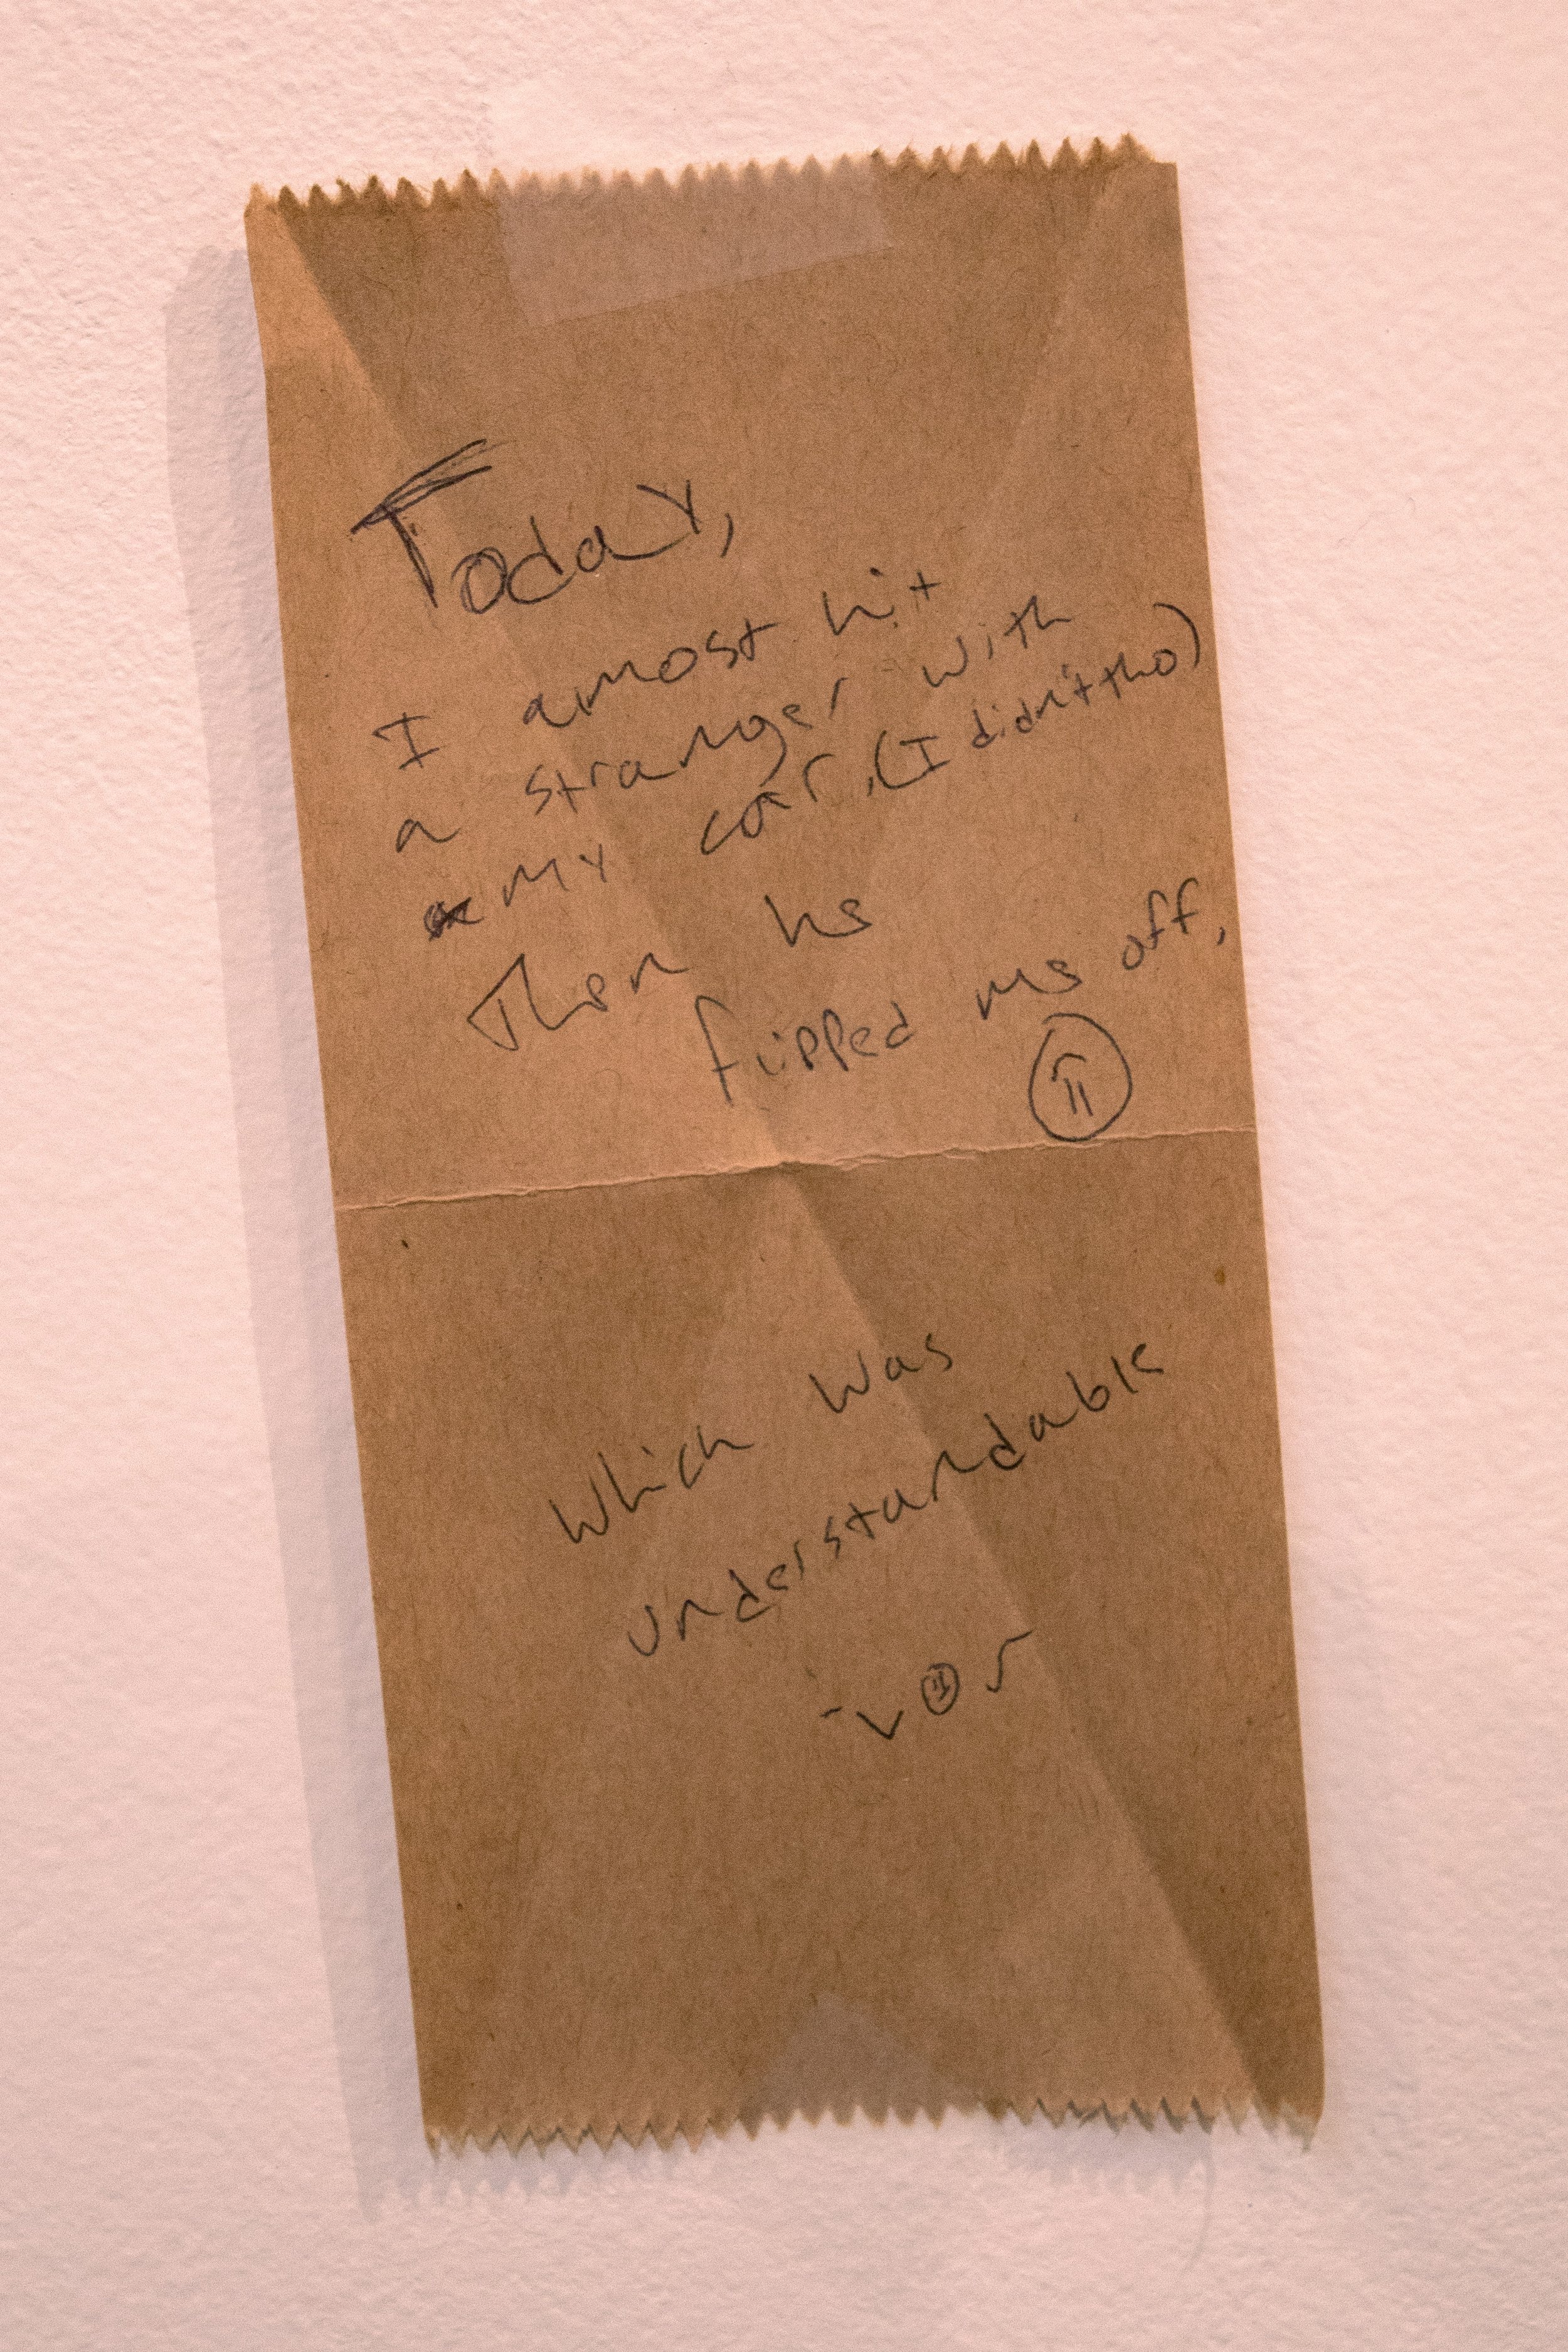 Today,
I amost hit
a stranger with
my car, (I didn't tho)
Then he
flipped me off,
Which was
understandable